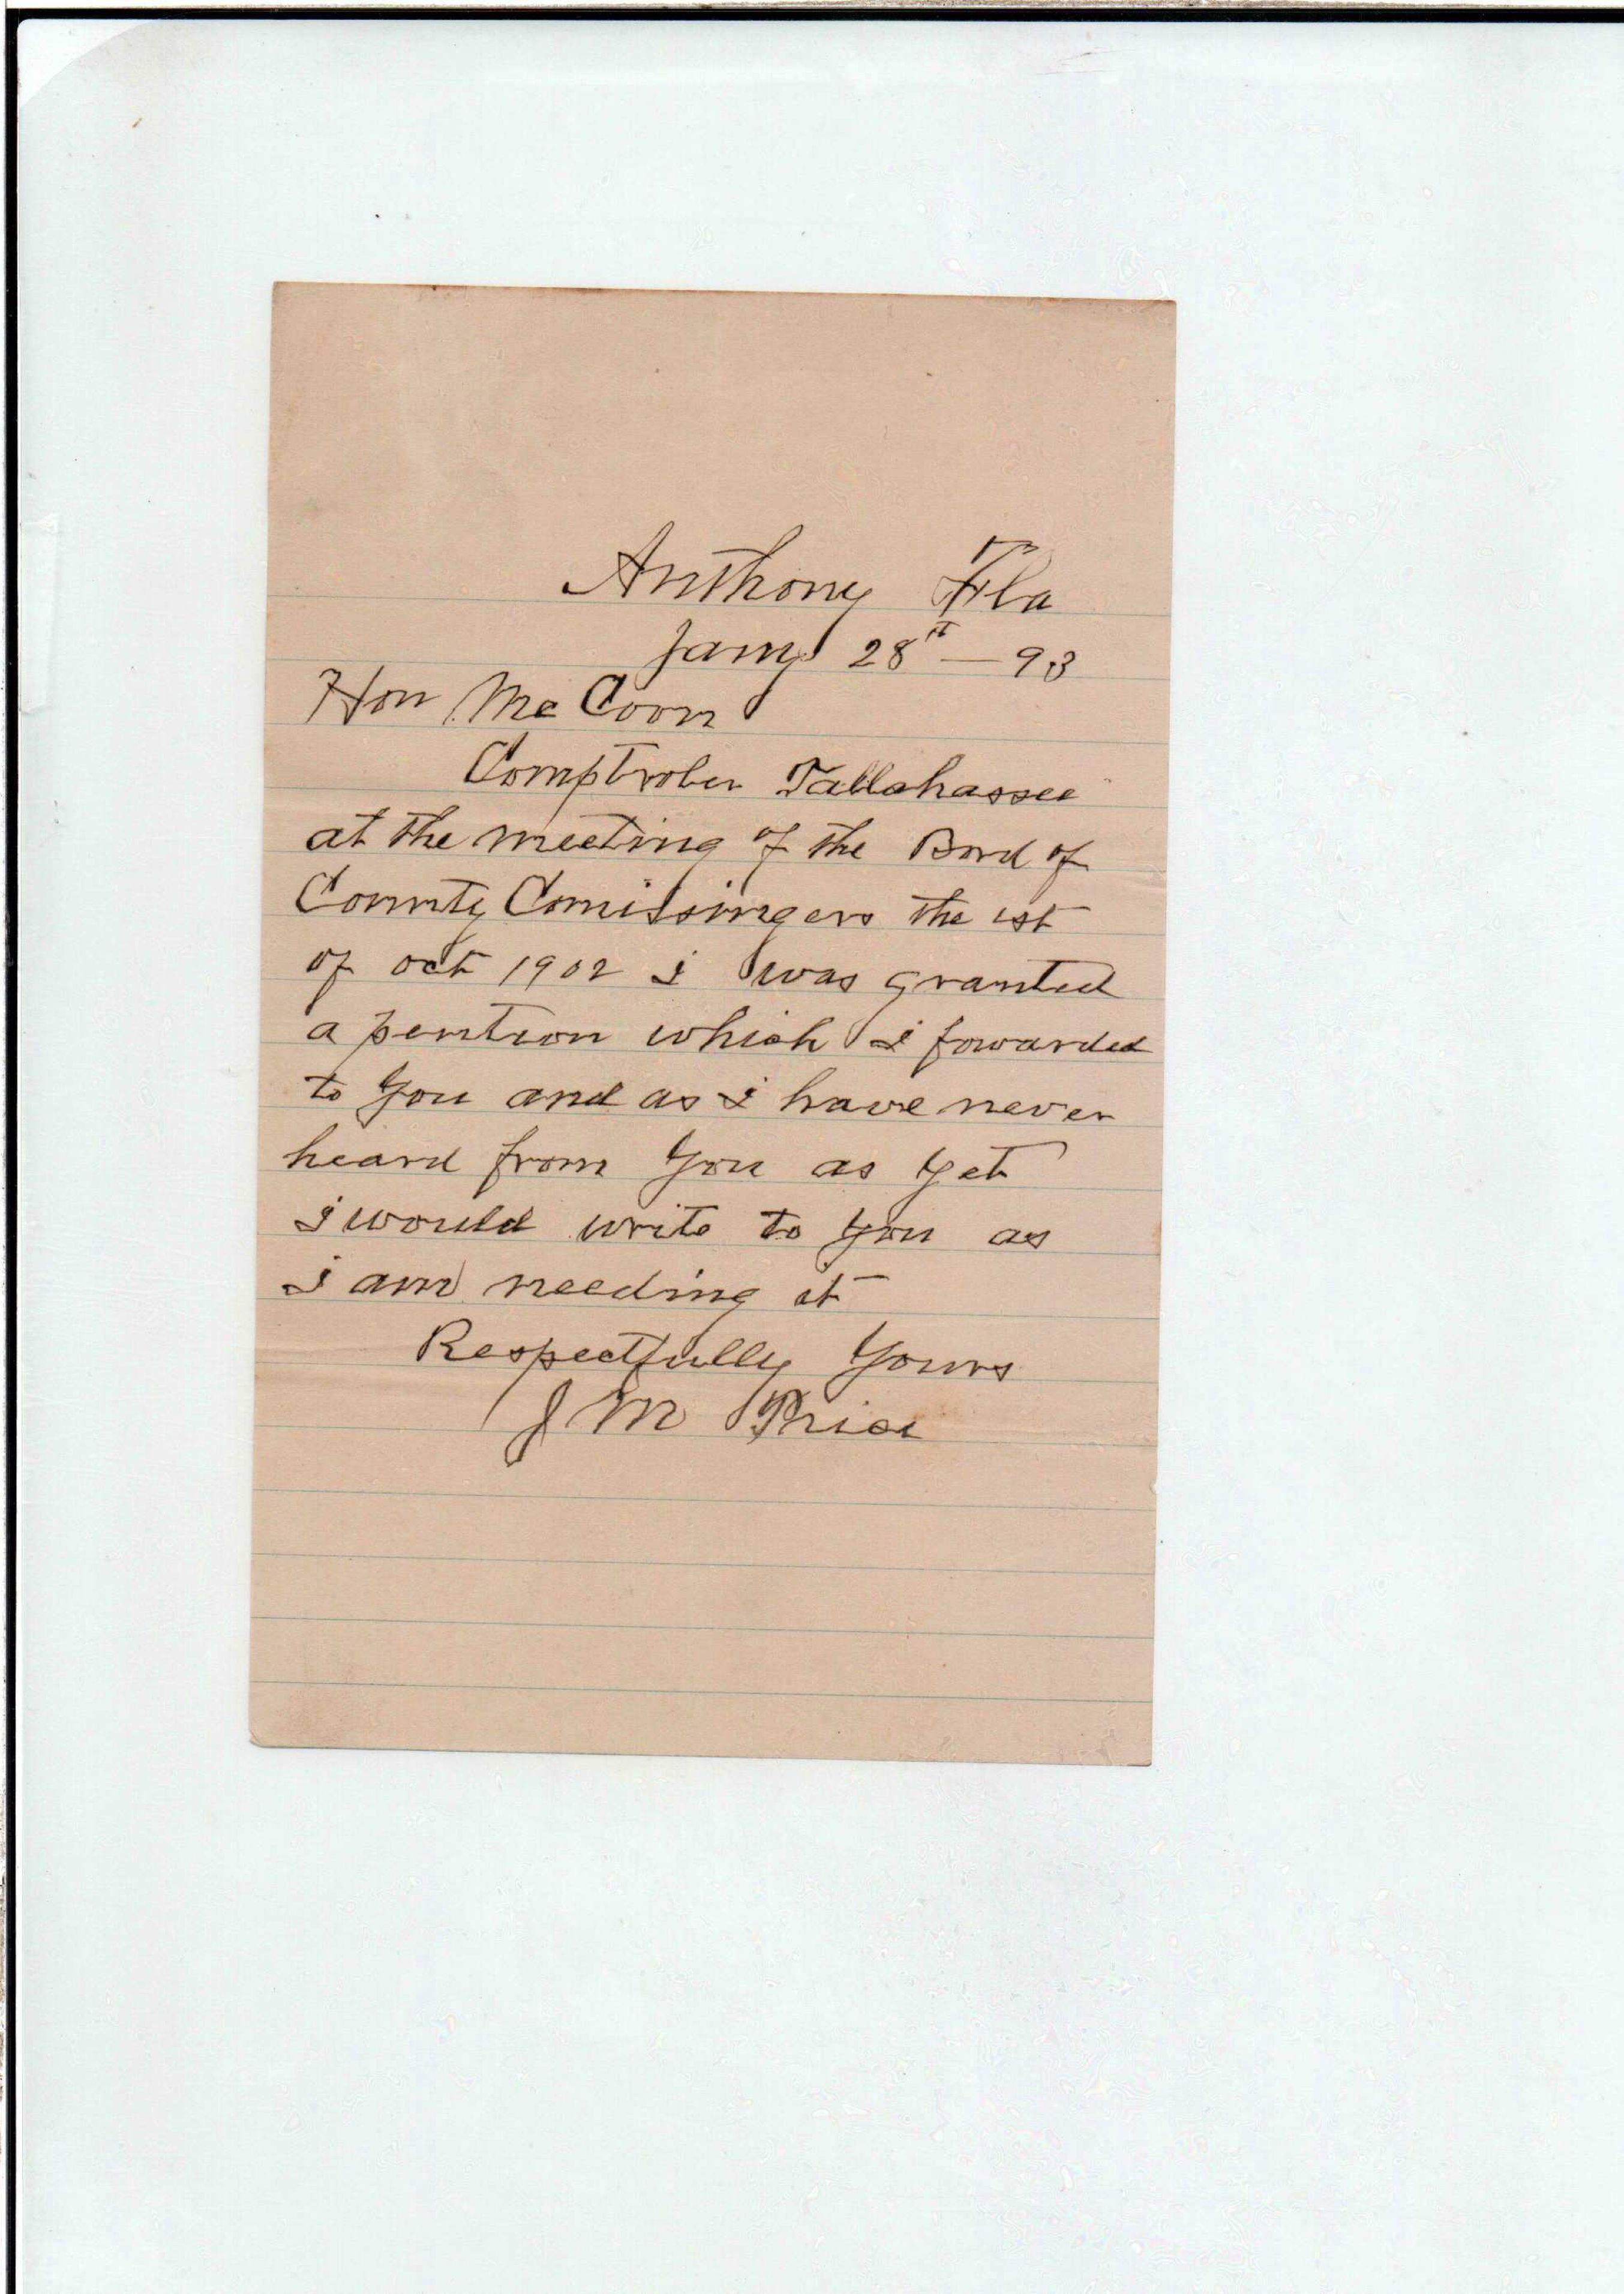 Anthony Fla
Jany 28th — 93
Hon Mc Coon
Comptroler Tallahassee
at the meeting of the Bord of
County Comissingers the 1st
of oct 1902 i was granted
a pention which i fowarded
to you and as i have never
heard from you as yet
i would write to you as
i am needing it
Respectfully yours
J M Price